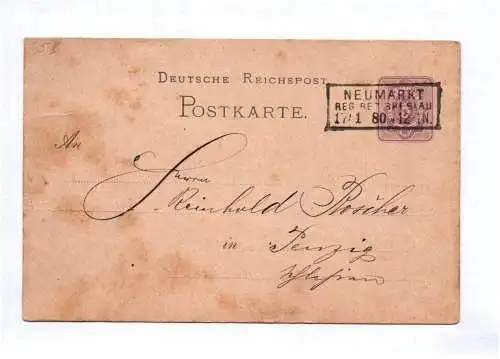 DEUTSCHE REICHSPOST.
POSTKARTE.
NEUMARKT
REG. BEZ. BRESLAU
17/1 80 *12-1N.
An
Herrn
Reinhold Röscher
in Penzig
Schlesien